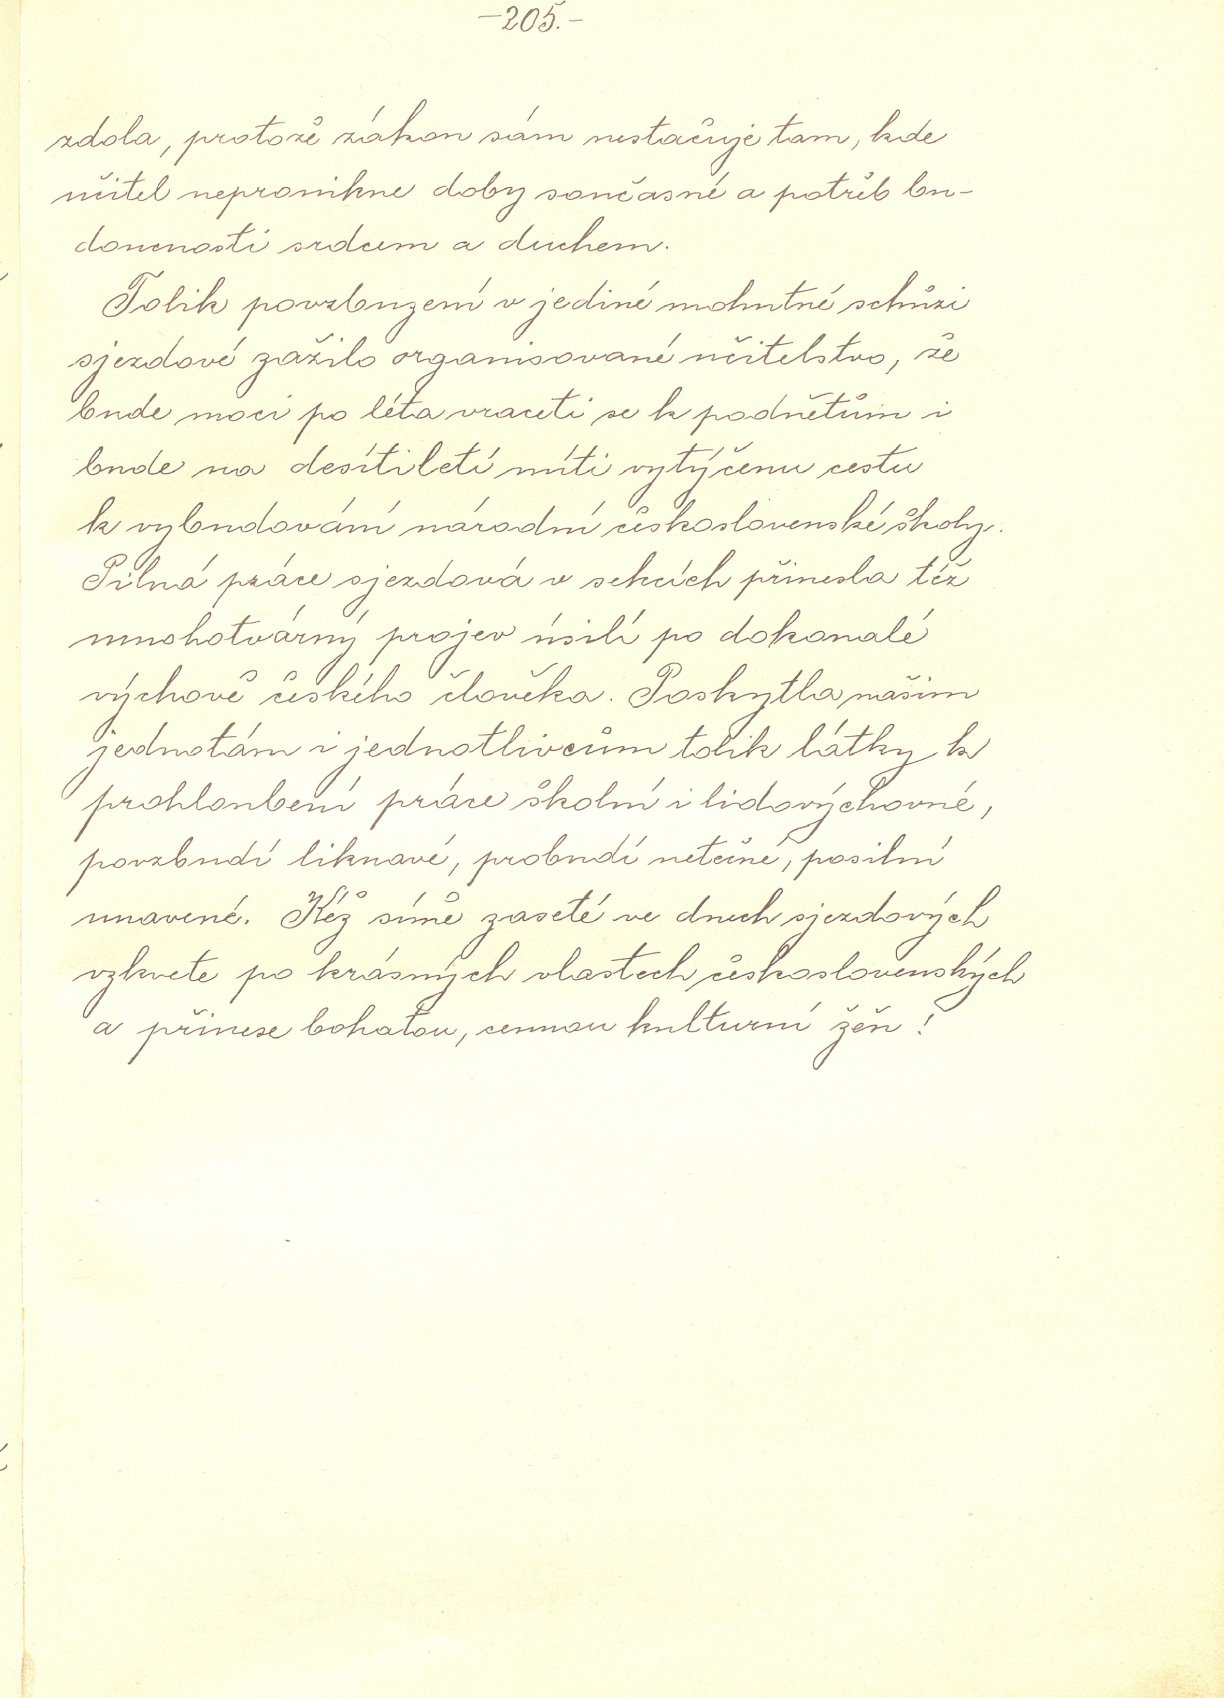 –205.–
zdola, protože zákon sám nestačuje tam, kde
učitel nepronikne doby současné a potřeb bu-
doucnosti srdcem a duchem.
Tolik povzbuzení v jediné mohutné schůzi
sjezdové zažilo organisované učitelstvo, že
bude moci po léta vraceti se k podnětům i
bude na desítiletí míti vytýčenu cestu
k vybudování národní československé školy.
Pilná práce sjezdová v sekcích přinesla též
mnohotvárný projev úsilí po dokonalé
výchově českého člověka. Poskytla našim
jednotám i jednotlivcům tolik látky k
prohloubení práce školní i lidovýchovné,
povzbudí liknavé, probudí netečné, posilní
unavené. Kéž símě zaseté ve dnech sjezdových
vzkvete po krásných vlastech československých
a přinese bohatou, cennou kulturní žěň!